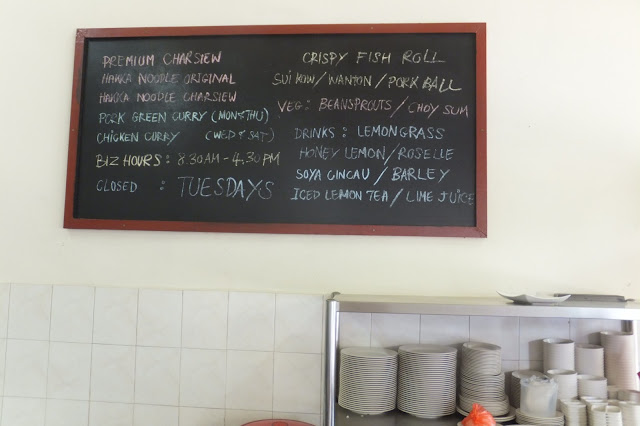 PREMIUM CHARSIEW
HAKKA NOODLE ORIGINAL
HAKKA NOODLE CHARSIEW
PORK GREEN CURRY (MON & THU)
CHICKEN CURRY (WED & SAT)
BIZ HOURS : 8.30AM - 4.30PM
CLOSED : TUESDAYS
CRISPY FISH ROLL
SUI KOW / WANTON / PORK BALL
VEG: BEANSPROUTS / CHOY SUM
DRINKS : LEMONGRASS
HONEY LEMON / ROSELLE
SOYA CINCAU / BARLEY
ICED LEMON TEA / LIME JUICE